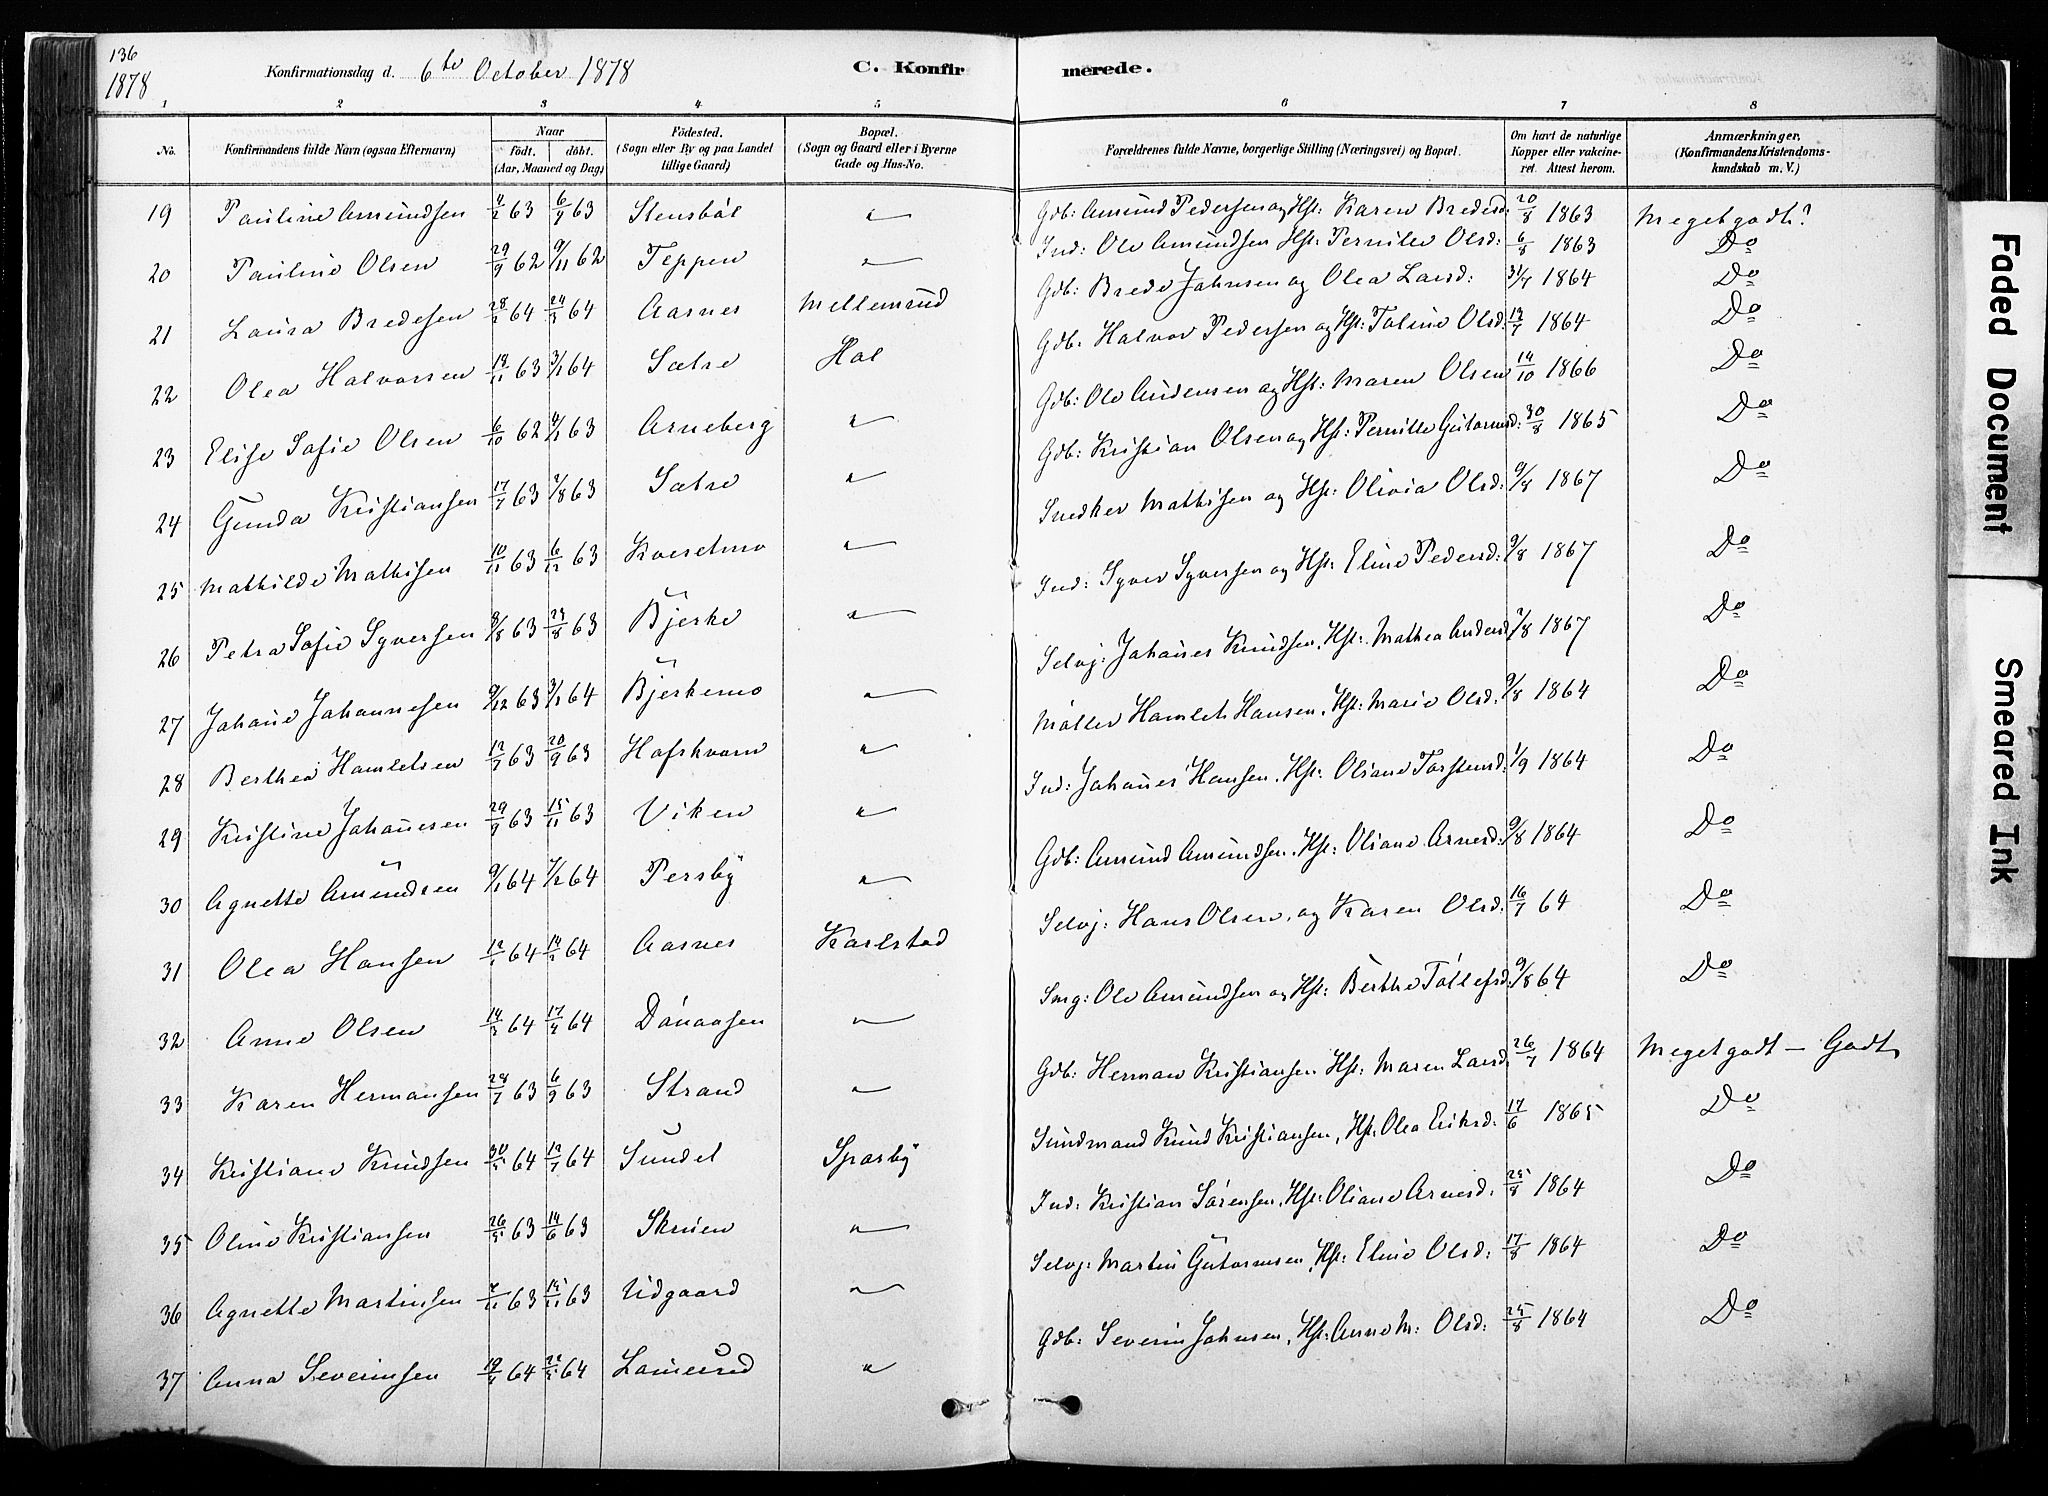 136
1878
Konfirmationsdag d. 6te October 1878
C. Konfirmerede.
1 2 3 4 5 6 7 8
No. Konfirmandens fulde Navn (ogsaa Efternavn) Naar født. døbt. (Aar, Maaned og Dag) Fødested. (Sogn eller By og paa Landet tillige Gaard) Bopæl. (Sogn og Gaard eller i Byerne Gade og Hus-No. Forældrenes fulde Navne, borgerlige Stilling (Næringsvei) og Bopæl. Om havt de naturlige Kopper eller vakcineret. Attest herom. Anmærkninger. (Konfirmandens Kristendomskundskab m. V.)
19 Pauline Amundsen 4/2 63 6/4 63 Stensböl " Gdb: Amund Pedersen og Hst: Karen Bredesd: 20/8 1863 Meget godt?
20 Pauline Olsen 29/9 62 9/11 62 Teppen " Ind: Ole Amundsen Hst: Pernille Olsd: 6/8 1863 Do
21 Laura Bredesen 28/2 64 24/3 64 Aasnes Mellemrud Gdb: Brede Johnsen og Olea Larsd: 31/7 1864 Do
22 Olea Halvorsen 19/11 63 3/1 64 Sætre Hol Gdb. Halvor Pedersen og Hst: Toline Olsd: 12/7 1864 Do
23 Elise Sofie Olsen 6/10 62 4/1 63 Arneberg " Gdb: Ole Audensen og Hst: Maren Olsen 14/10 1866 Do
24 Gunda Kristiansen 17/7 63 2/8 63 Sætre " Gdb: Kristian Olsen og Hst: Pernille Gutormsd: 30/8 1865 Do
25 Mathilde Mathisen 10/11 63 6/12 63 Kveselmo " Snedker Mathisen og Hst: Olivia Olsd: 9/8 1867 Do
26 Petra Sofie Syversen 3/8 63 23/8 63 Bjerke " Ind: Syver Syversen og Hst: Eline Pedersd: 9/8 1867 Do
27 Johane Johannesen 9/12 63 3/1 64 Bjerkemo " Selvj: Johanes Knudsen, Hst: Mathea Andersd 7/8 1867 Do
28 Berthea Hamletsen 12/7 63 20/9 63 Hofskvarn " Møller Hamlet Hansen, Hst: Marie Olsd. 9/8 1864 Do
29 Kristine Johanesen 29/9 63 15/11 63 Viken " Ind: Johanes Hansen, Hst: Oliane Torstensd: 1/9 1864 Do
30 Agnette Amundsen 9/1 64 7/2 64 Persby " Gdb: Amund Amundsen, Hst: Oliane Arnesd: 9/8 1864 Do
31 Olea Hansen 12/1 64 14/2 64 Aasnes Karlstad Selvj: Hans Olsen, og Karen Olsd: 16/7 64 Do
32 Anne Olsen 14/3 64 17/4 64 Dönaasen " Smg: Ole Amundsen og Hst: Berthe Tollefsd: 9/8 64 Do
33 Karen Hermansen 24/7 63 6/9 63 Strand " Gdb: Herman Kristiansen Hst: Maren Larsd: 26/7 1864 Meget godt — Godt
34 Kristiane Knudsen 30/5 64 12/7 64 Sundet Sparby Sundmand Knud Kristiansen, Hst: Olea Eriksd: 17/6 1865 Do
35 Oline Kristiansen 26/5 63 14/6 63 Skruen " Ind: Kristian Sörensen, Hst: Oliane Arnesd: 25/8 1864 Do
36 Agnette Martinsen 7/11 63 15/11 63 Udgaard " Selvj: Martin Gutormsen, Hst: Eline Olsd: 17/8 1864 Do
37 Anna Severinsen 19/4 64 22/5 64 " Gdb: Severin Johnsen, Hst: Anne M: Olsd: 25/8 1864 Do
Faded Document
Smeared Ink